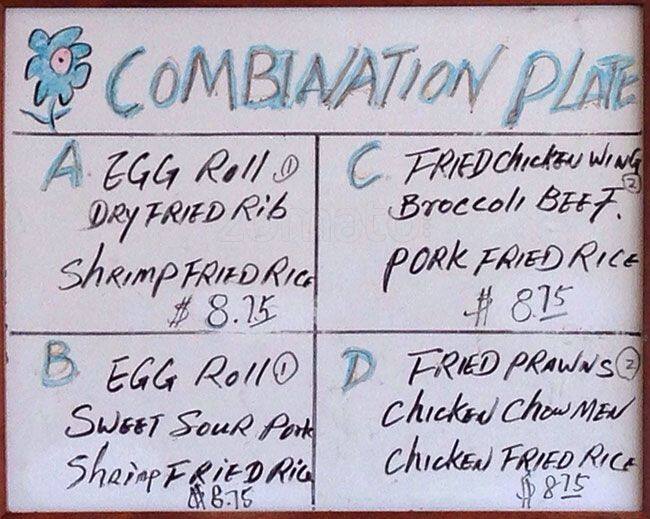 COMBINATION PLATE
A EGG Roll 1
DRY FRIED Rib
Shrimp FRIED RICE
$ 8.75
B EGG Roll 1
SWEET SOUR Pork
Shrimp FRIED Rice
$ 8.75
C FRIED Chicken WING 2
Broccoli BEEF.
PORK FRIED RICE
$ 8.75
D FRIED PRAWNS 2
Chicken Chow MEN
Chicken FRIED RICE
$ 8.75
zomato